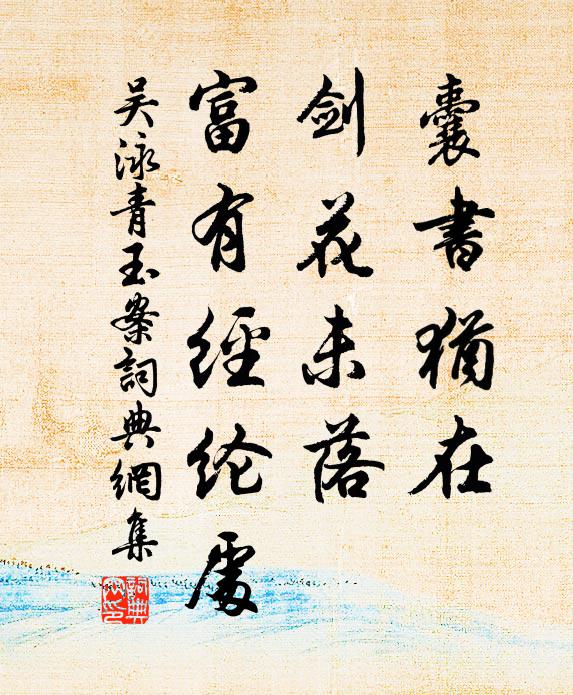 囊書猶在
劍花未落
富有經纶處
吴泳青玉案詞典網集